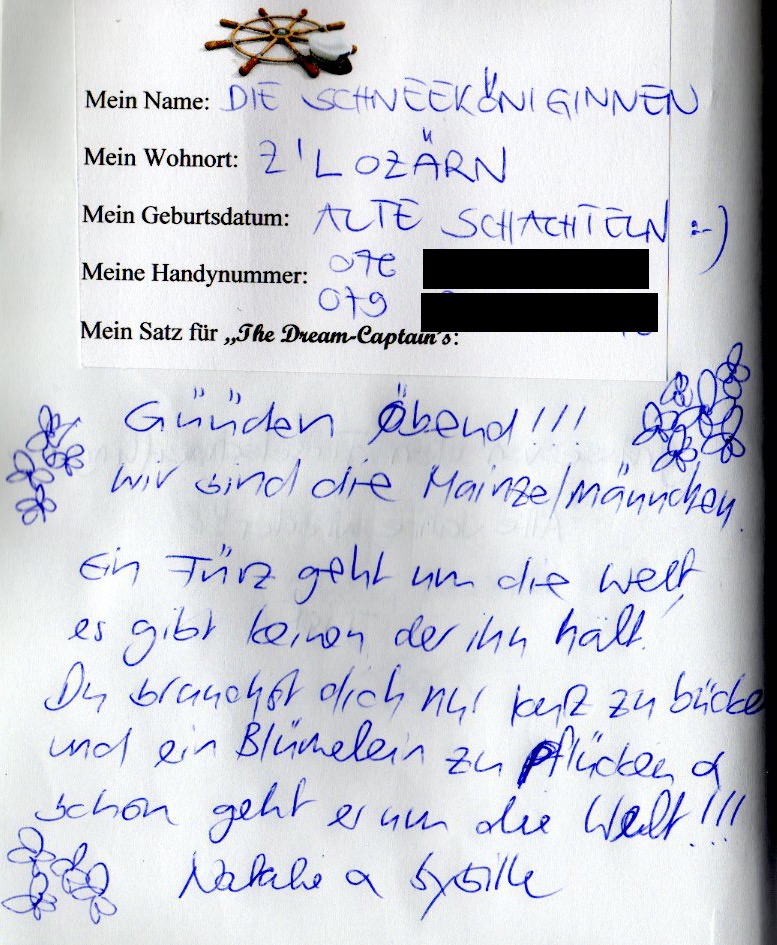 Mein Name: DIE SCHNEEKÖNIGINNEN
Mein Wohnort: Z'LOZÄRN
Mein Geburtsdatum: ALTE SCHACHTELN :-)
Meine Handynummer: 076
079
Mein Satz für „The Dream-Captain's:
Günden Öbend!!!
Wir sind die Mainzelmännchen.
Ein Fürz geht um die Welt,
es gibt keinen der ihn hält!
Du brauchst dich nur kurz zu bücke
und ein Blümelein zu pflücken &
schon geht er um die Welt!!!
Natalie & Sybille